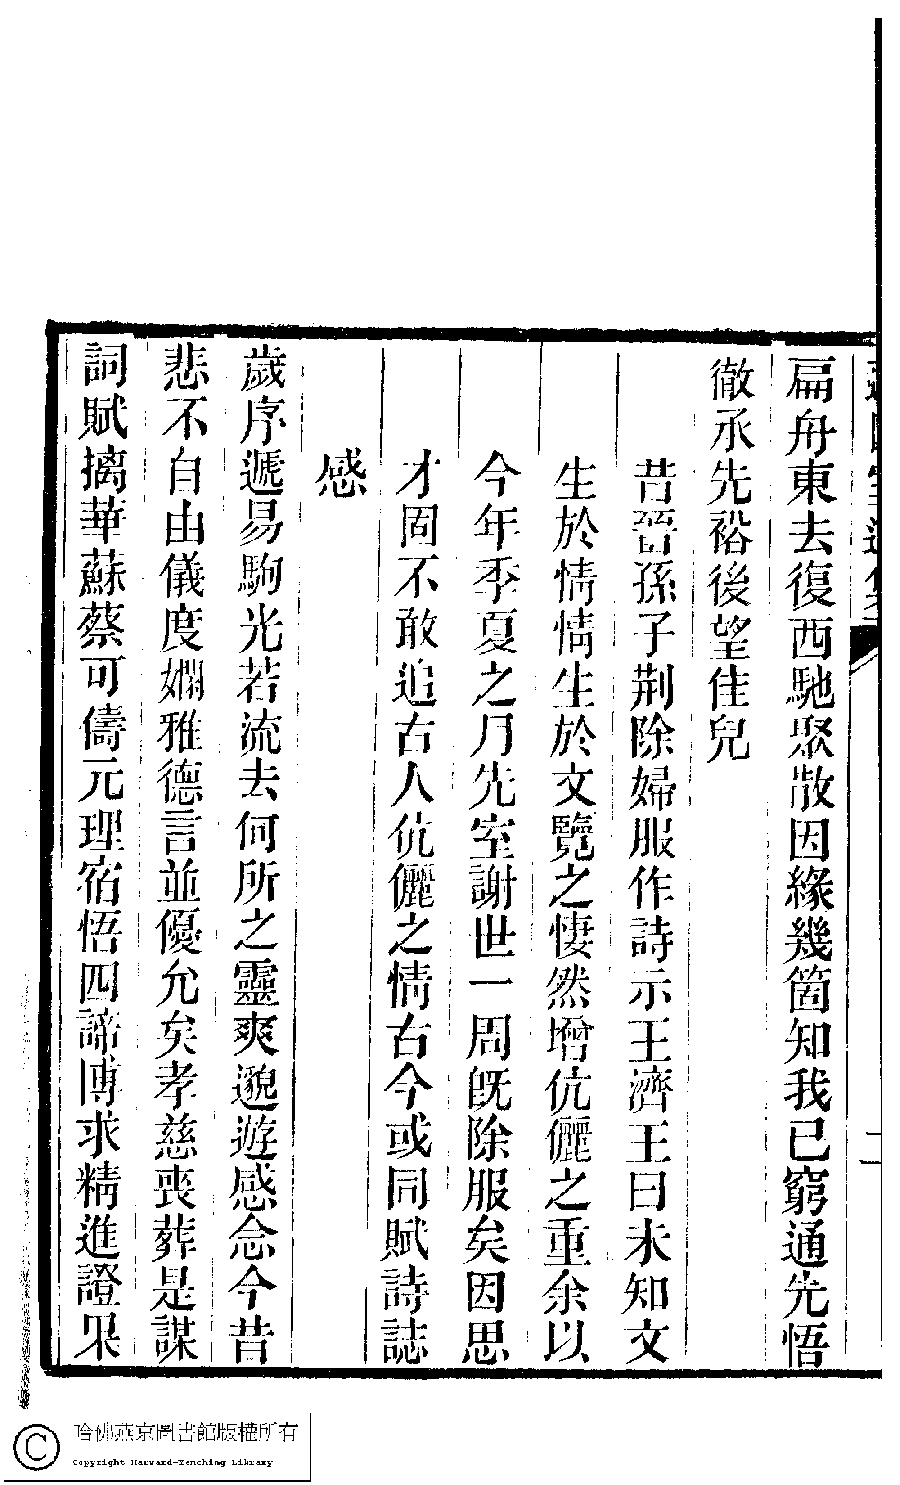 扁舟東去復西馳聚散因緣幾箇知我已窮通先悟
徹承先裕後望佳兒
昔晉孫子荆除婦服作詩示王濟王曰未知文
生於情情生於文覽之悽然增伉儷之重余以
今年季夏之月先室謝世一周既除服矣因思
才固不敢追古人伉儷之情古今或同賦詩誌
感
歲序遞易駒光若流去何所之靈爽邈遊感念今昔
悲不自由儀度嫻雅德言並優允矣孝慈喪葬是謀
詞賦摛華蘇蔡可儔元理宿悟四諦博求精進證果
哈佛燕京圖書館版權所有
Copyright Harvard-Yenching Library